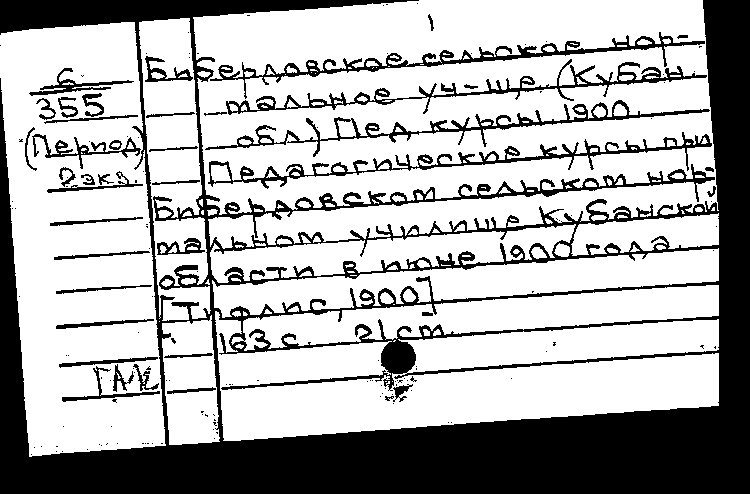 Бибердовское сельское нор-
мальное уч-ще (Кубан.
обл.) Пед. курсы. 1900.
Педагогические курсы при
Бибердовском сельском нор-
мальном училище Кубанской
области в июне 1900 года.
[Тифлис, 1900]
163 с. 21 cm.
6
355
(Период)
2 экз.